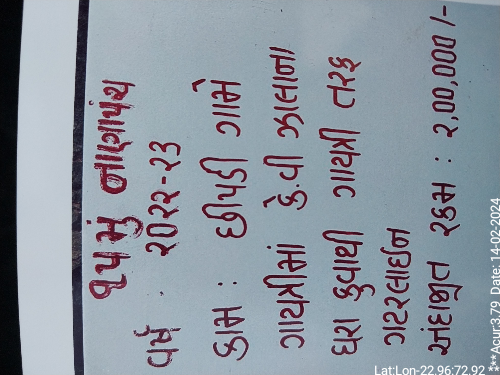 ૧૫ મું નાણાપંચ
વર્ષ : ૨૦૨૨-૨૩
કામ : છીપડી ગામે
ગાયત્રીમાં કે.વી ઝાલાના
ઘરા કુવાથી ગાયત્રી તરફ
ગટરલાઈન
અંદાજીત રકમ : ૨,૦૦,૦૦૦/-
Lat:Lon-22.96:72.92
***Acur:3.79 Date: 14-02-2024